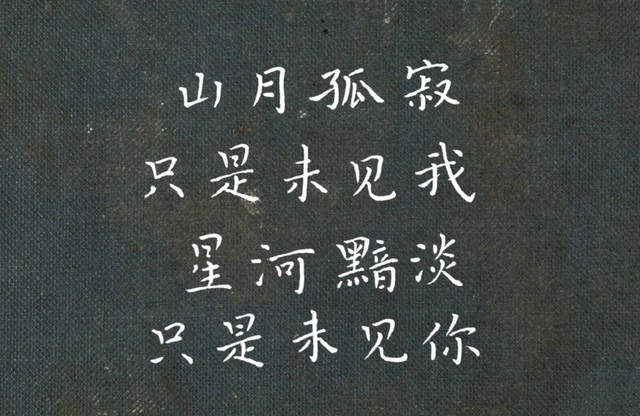 山月孤寂
只是未见我
星河黯淡
只是未见你